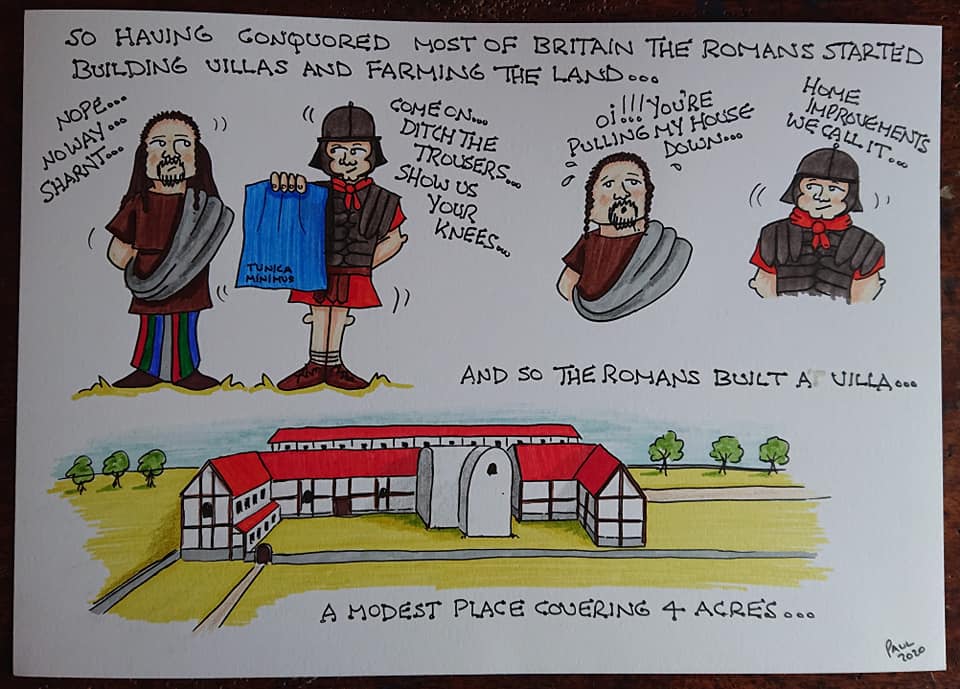 SO HAVING CONQUORED MOST OF BRITAIN THE ROMANS STARTED
BUILDING VILLAS AND FARMING THE LAND...
NOPE...
NO WAY...
SHARNT...
COME ON...
DITCH THE
TROUSERS...
SHOW US
YOUR
KNEES...
TUNICA
MINIMUS
OI!!! YOU'RE
PULLING MY HOUSE
DOWN...
HOME
IMPROVEMENTS
WE CALL IT...
AND SO THE ROMANS BUILT A VILLA...
A MODEST PLACE COVERING 4 ACRES...
PAUL
2020